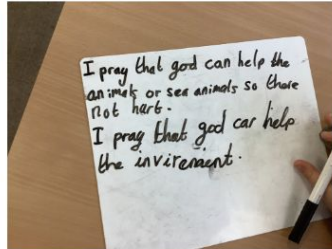 I pray that god can help the
animels or sea animals so there
not hurt.
I pray that god can help
the invirement.